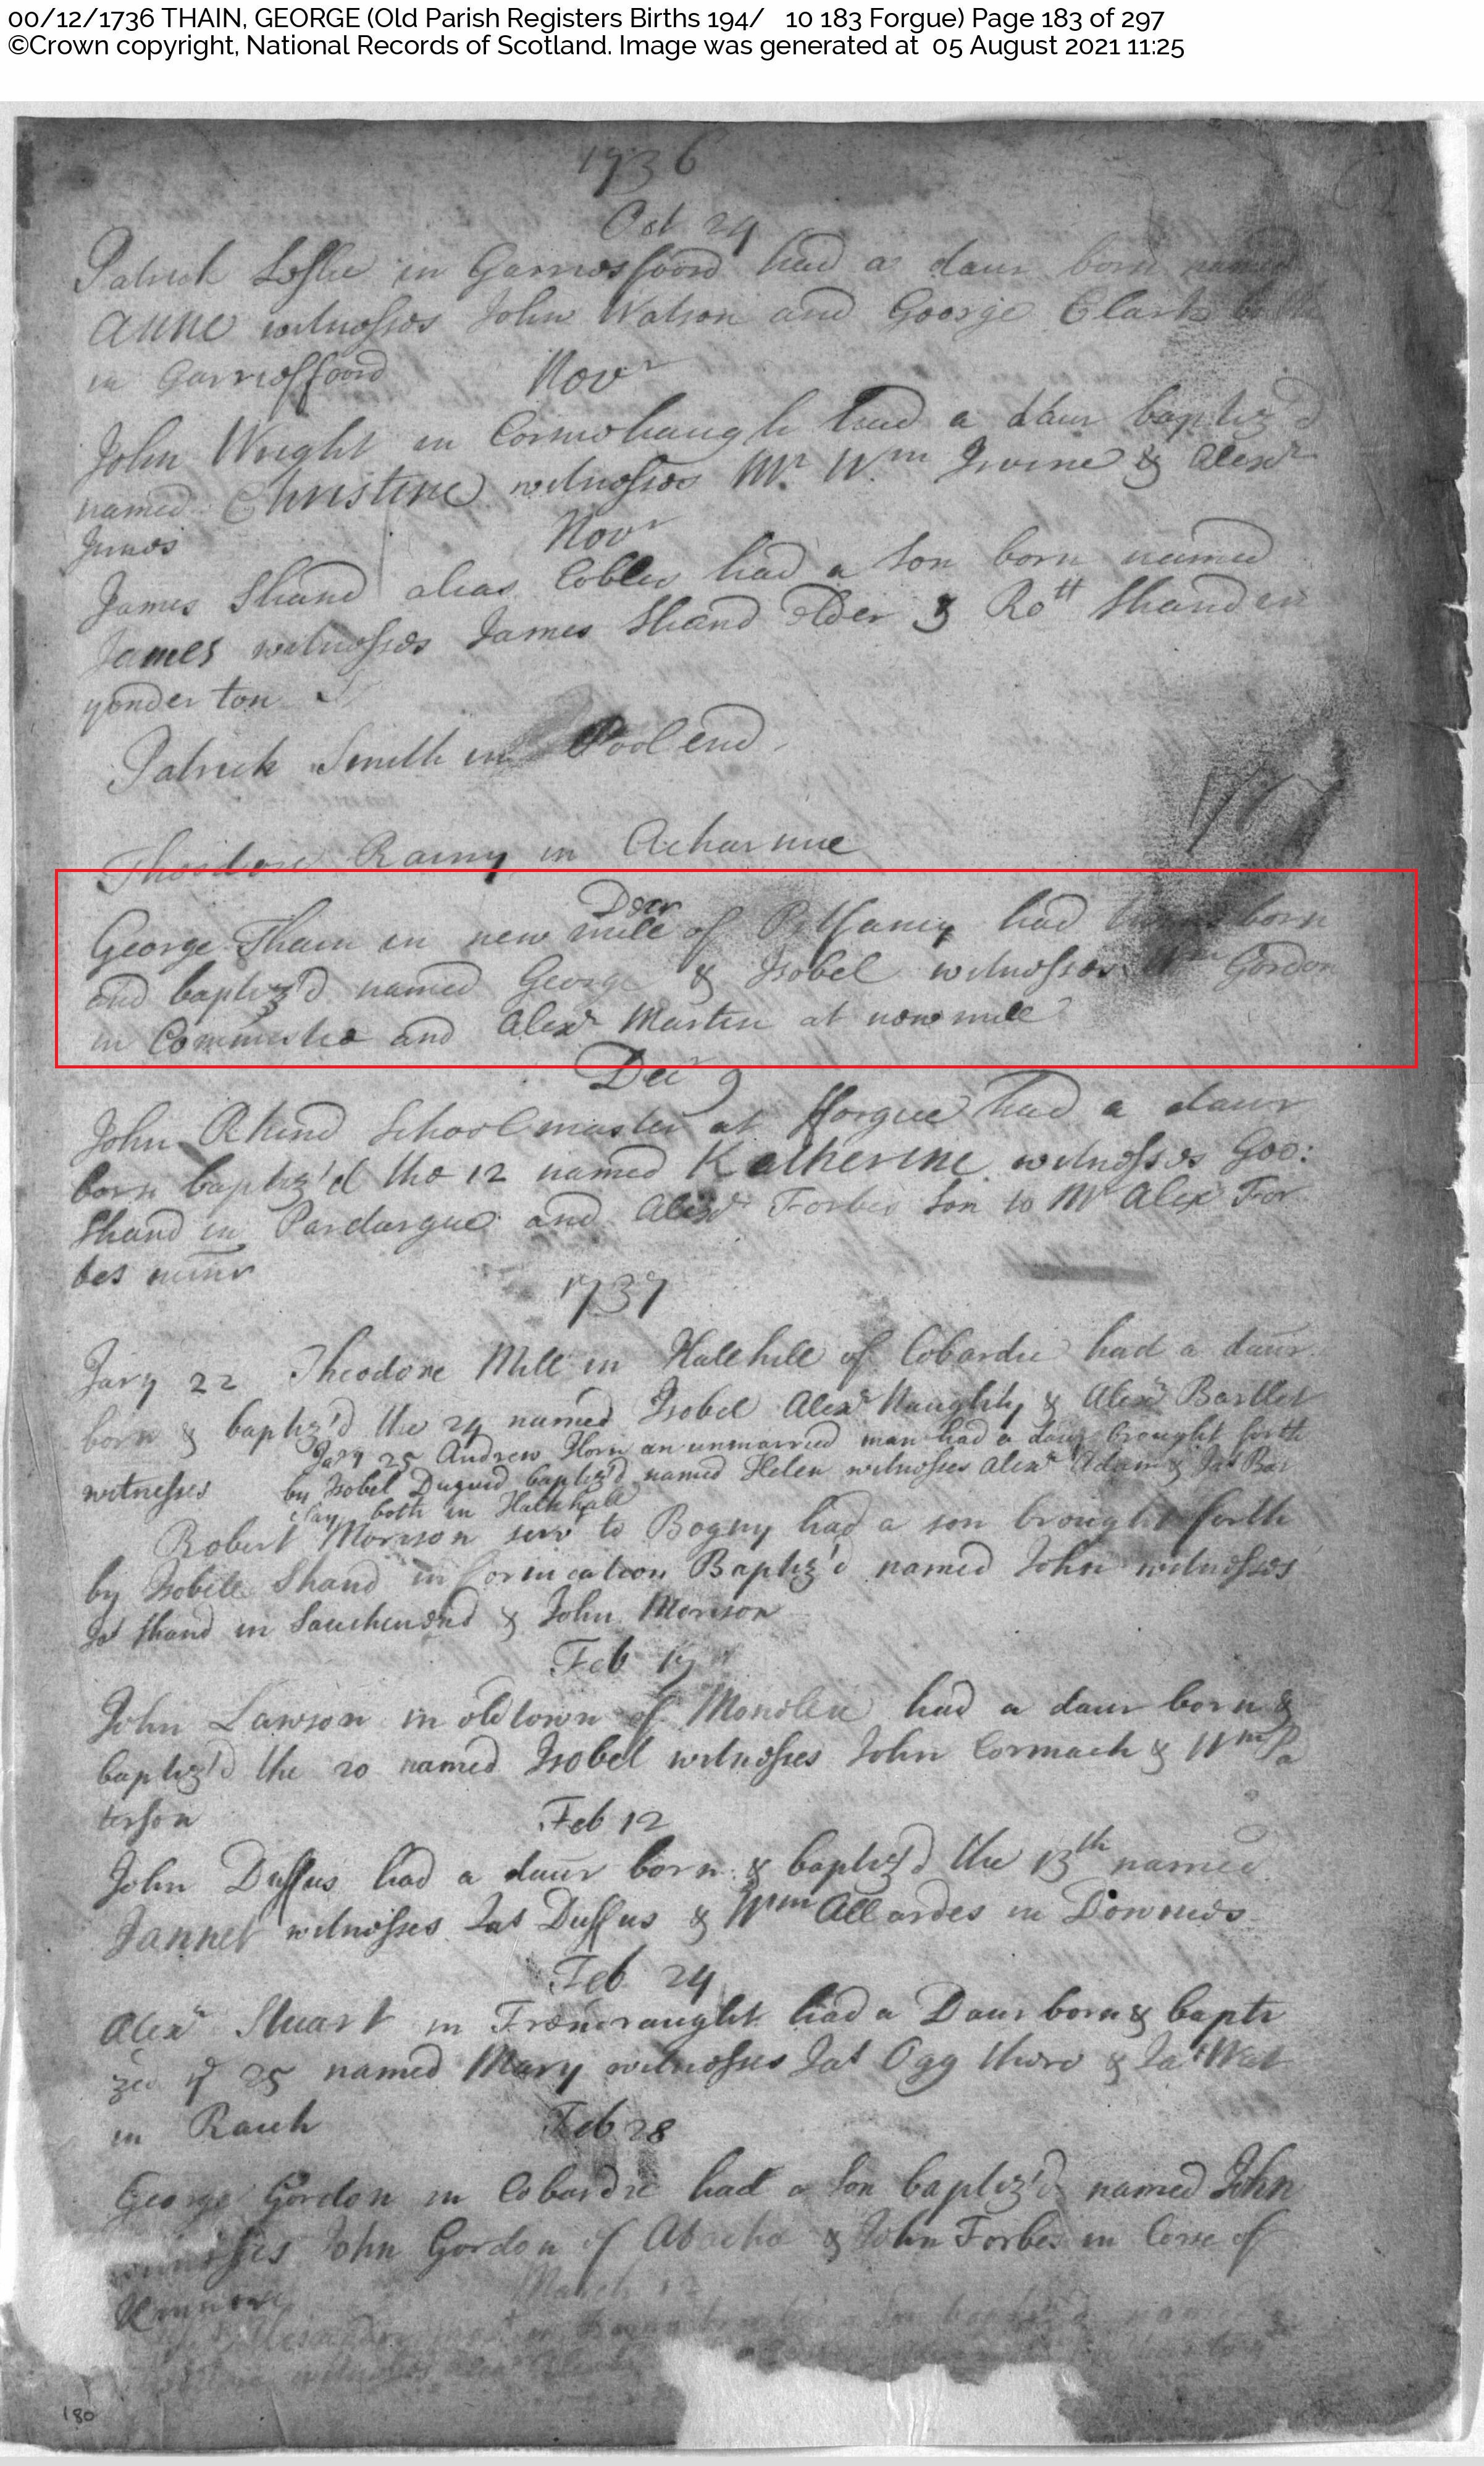 00/12/1736 THAIN, GEORGE (Old Parish Registers Births 194/ 10 183 Forgue) Page 183 of 297
©Crown copyright, National Records of Scotland. Image was generated at 05 August 2021 11:25
1736
Oct 24
Patrick Leslie in Garriesfoord had a daur born named
Anne witnesses John Watson and George Clark both
in Garriesfoord
Novr
John Wright in Corniehaugh had a daur baptiz'd
named Christine witnesses Mr. Wm Irvine & Alexr
Innes
Novr
James Shand alias Cobler had a son born named
James witnesses James Shand elder & Rott Shand in
yonder ton
Patrick Smith in Poolend
Theodore Rainy in Acharnie
Decr
George Thain in new mill of Pitfancy had twins born
and baptiz'd named George & Isobel witnesses Wm Gordon
in Comistie and Alexr Martin at new mill
Decr 9
John Rhind Schoolmaster at fforgue had a daur
born baptiz'd the 12 named Katherine witnesses Geo:
Shand in Pardargue and Alexr Forbes son to Mr Alexr For
bes minr
1737
Jary 22 Theodore Mill in Hallhill of Cobardie had a daur
born & baptiz'd the 24 named Isobel Alexr Naughty & Alexr Bartlet
witnesses
Jary 25 Andrew Horn an unmarried man had a daur brought forth
by Isobel Duguid baptiz'd named Helen witnesses Alexr Adam & Jas Bar
clay both in Hallhall
Robert Morison serv to Bogny had a son brought forth
by Isobell Shand in fornication Baptiz'd named John witnesses
Jas Shand in Sauchenend & John Morison
Feb 17
John Lawson in oldtown of Monellie had a daur born &
baptiz'd the 20 named Isobel witnesses John Cormack & Wm Pa
terson
Feb 12
John Duffus had a daur born & baptiz'd the 13th named
Jannet witnesses Jas Duffus & Wm Allardes in Downies
Feb 24
Alexr Stuart in Frendraught had a Daur born & bapti
zed ye 25 named Mary witnesses Jas Ogg there & Jas Wat
in Raich
Feb 28
George Gordon in Cobardie had a son baptiz'd named John
witnesses John Gordon of Abachie & John Forbes in Corse of
March 12
180